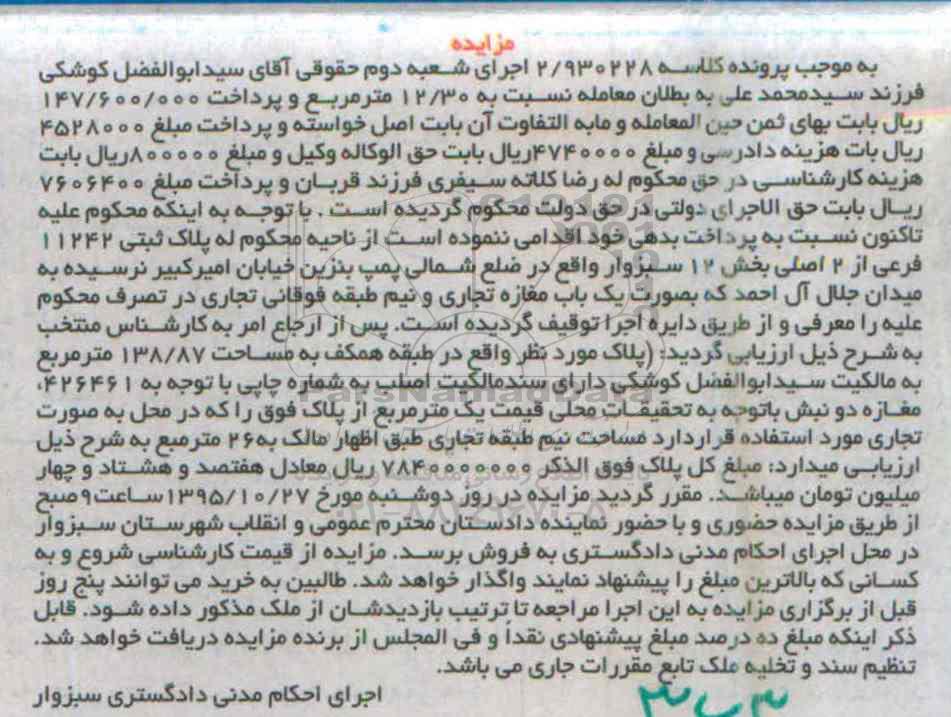 مزایده
به موجب پرونده کلاسه ۲/۹۳۰۲۲۸ اجرای شعبه دوم حقوقی آقای سیدابوالفضل کوشکی
فرزند سیدمحمد علی به بطلان معامله نسبت به ۱۲/۳۰ مترمربع و پرداخت ۱۴۷/۶۰۰/۰۰۰
ریال بابت بهای ثمن حین المعامله و مابه التفاوت آن بابت اصل خواسته و پرداخت مبلغ ۴۵۲۸۰۰۰
ریال بات هزینه دادرسی و مبلغ ۴۷۴۰۰۰۰ریال بابت حق الوکاله وکیل و مبلغ ۸۰۰۰۰۰ریال بابت
هزینه کارشناسی در حق محکوم له رضا کلاته سیفری فرزند قربان و پرداخت مبلغ ۷۶۰۶۴۰۰
ریال بابت حق الاجرای دولتی در حق دولت محکوم گردیده است . با توجه به اینکه محکوم علیه
تاکنون نسبت به پرداخت بدهی خود اقدامی ننموده است از ناحیه محکوم له پلاک ثبتی ۱۱۲۴۲
فرعی از ۲ اصلی بخش ۱۲ سبزوار واقع در ضلع شمالی پمپ بنزین خیابان امیرکبیر نرسیده به
میدان جلال آل احمد که بصورت یک باب مغازه تجاری و نیم طبقه فوقانی تجاری در تصرف محکوم
علیه را معرفی و از طریق دایره اجرا توقیف گردیده است. پس از ارجاع امر به کارشناس منتخب
به شرح ذیل ارزیابی گردید: (پلاک مورد نظر واقع در طبقه همکف به مساحت ۱۳۸/۸۷ مترمربع
به مالکیت سیدابوالفضل کوشکی دارای سندمالکیت اصلب به شماره چاپی با توجه به ۴۲۶۴۶۱،
مغازه دو نبش باتوجه به تحقیقات محلی قیمت یک مترمربع از پلاک فوق را که در محل به صورت
تجاری مورد استفاده قراردارد مساحت نیم طبقه تجاری طبق اظهار مالک به۲۶ مترمبع به شرح ذیل
ارزیابی میدارد: مبلغ کل پلاک فوق الذکر ۷۸۴۰۰۰۰۰۰۰ ریال معادل هفتصد و هشتاد و چهار
میلیون تومان میباشد. مقرر گردید مزایده در روز دوشنبه مورخ ۱۳۹۵/۱۰/۲۷ساعت۹صبح
از طریق مزایده حضوری و با حضور نماینده دادستان محترم عمومی و انقلاب شهرستان سبزوار
در محل اجرای احکام مدنی دادگستری به فروش برسد. مزایده از قیمت کارشناسی شروع و به
کسانی که بالاترین مبلغ را پیشنهاد نمایند واگذار خواهد شد. طالبین به خرید می توانند پنج روز
قبل از برگزاری مزایده به این اجرا مراجعه تا ترتیب بازدیدشان از ملک مذکور داده شود. قابل
ذکر اینکه مبلغ ده درصد مبلغ پیشنهادی نقداً و فی المجلس از برنده مزایده دریافت خواهد شد.
تنظیم سند و تخلیه ملک تابع مقررات جاری می باشد.
اجرای احکام مدنی دادگستری سبزوار
ParsNamadData